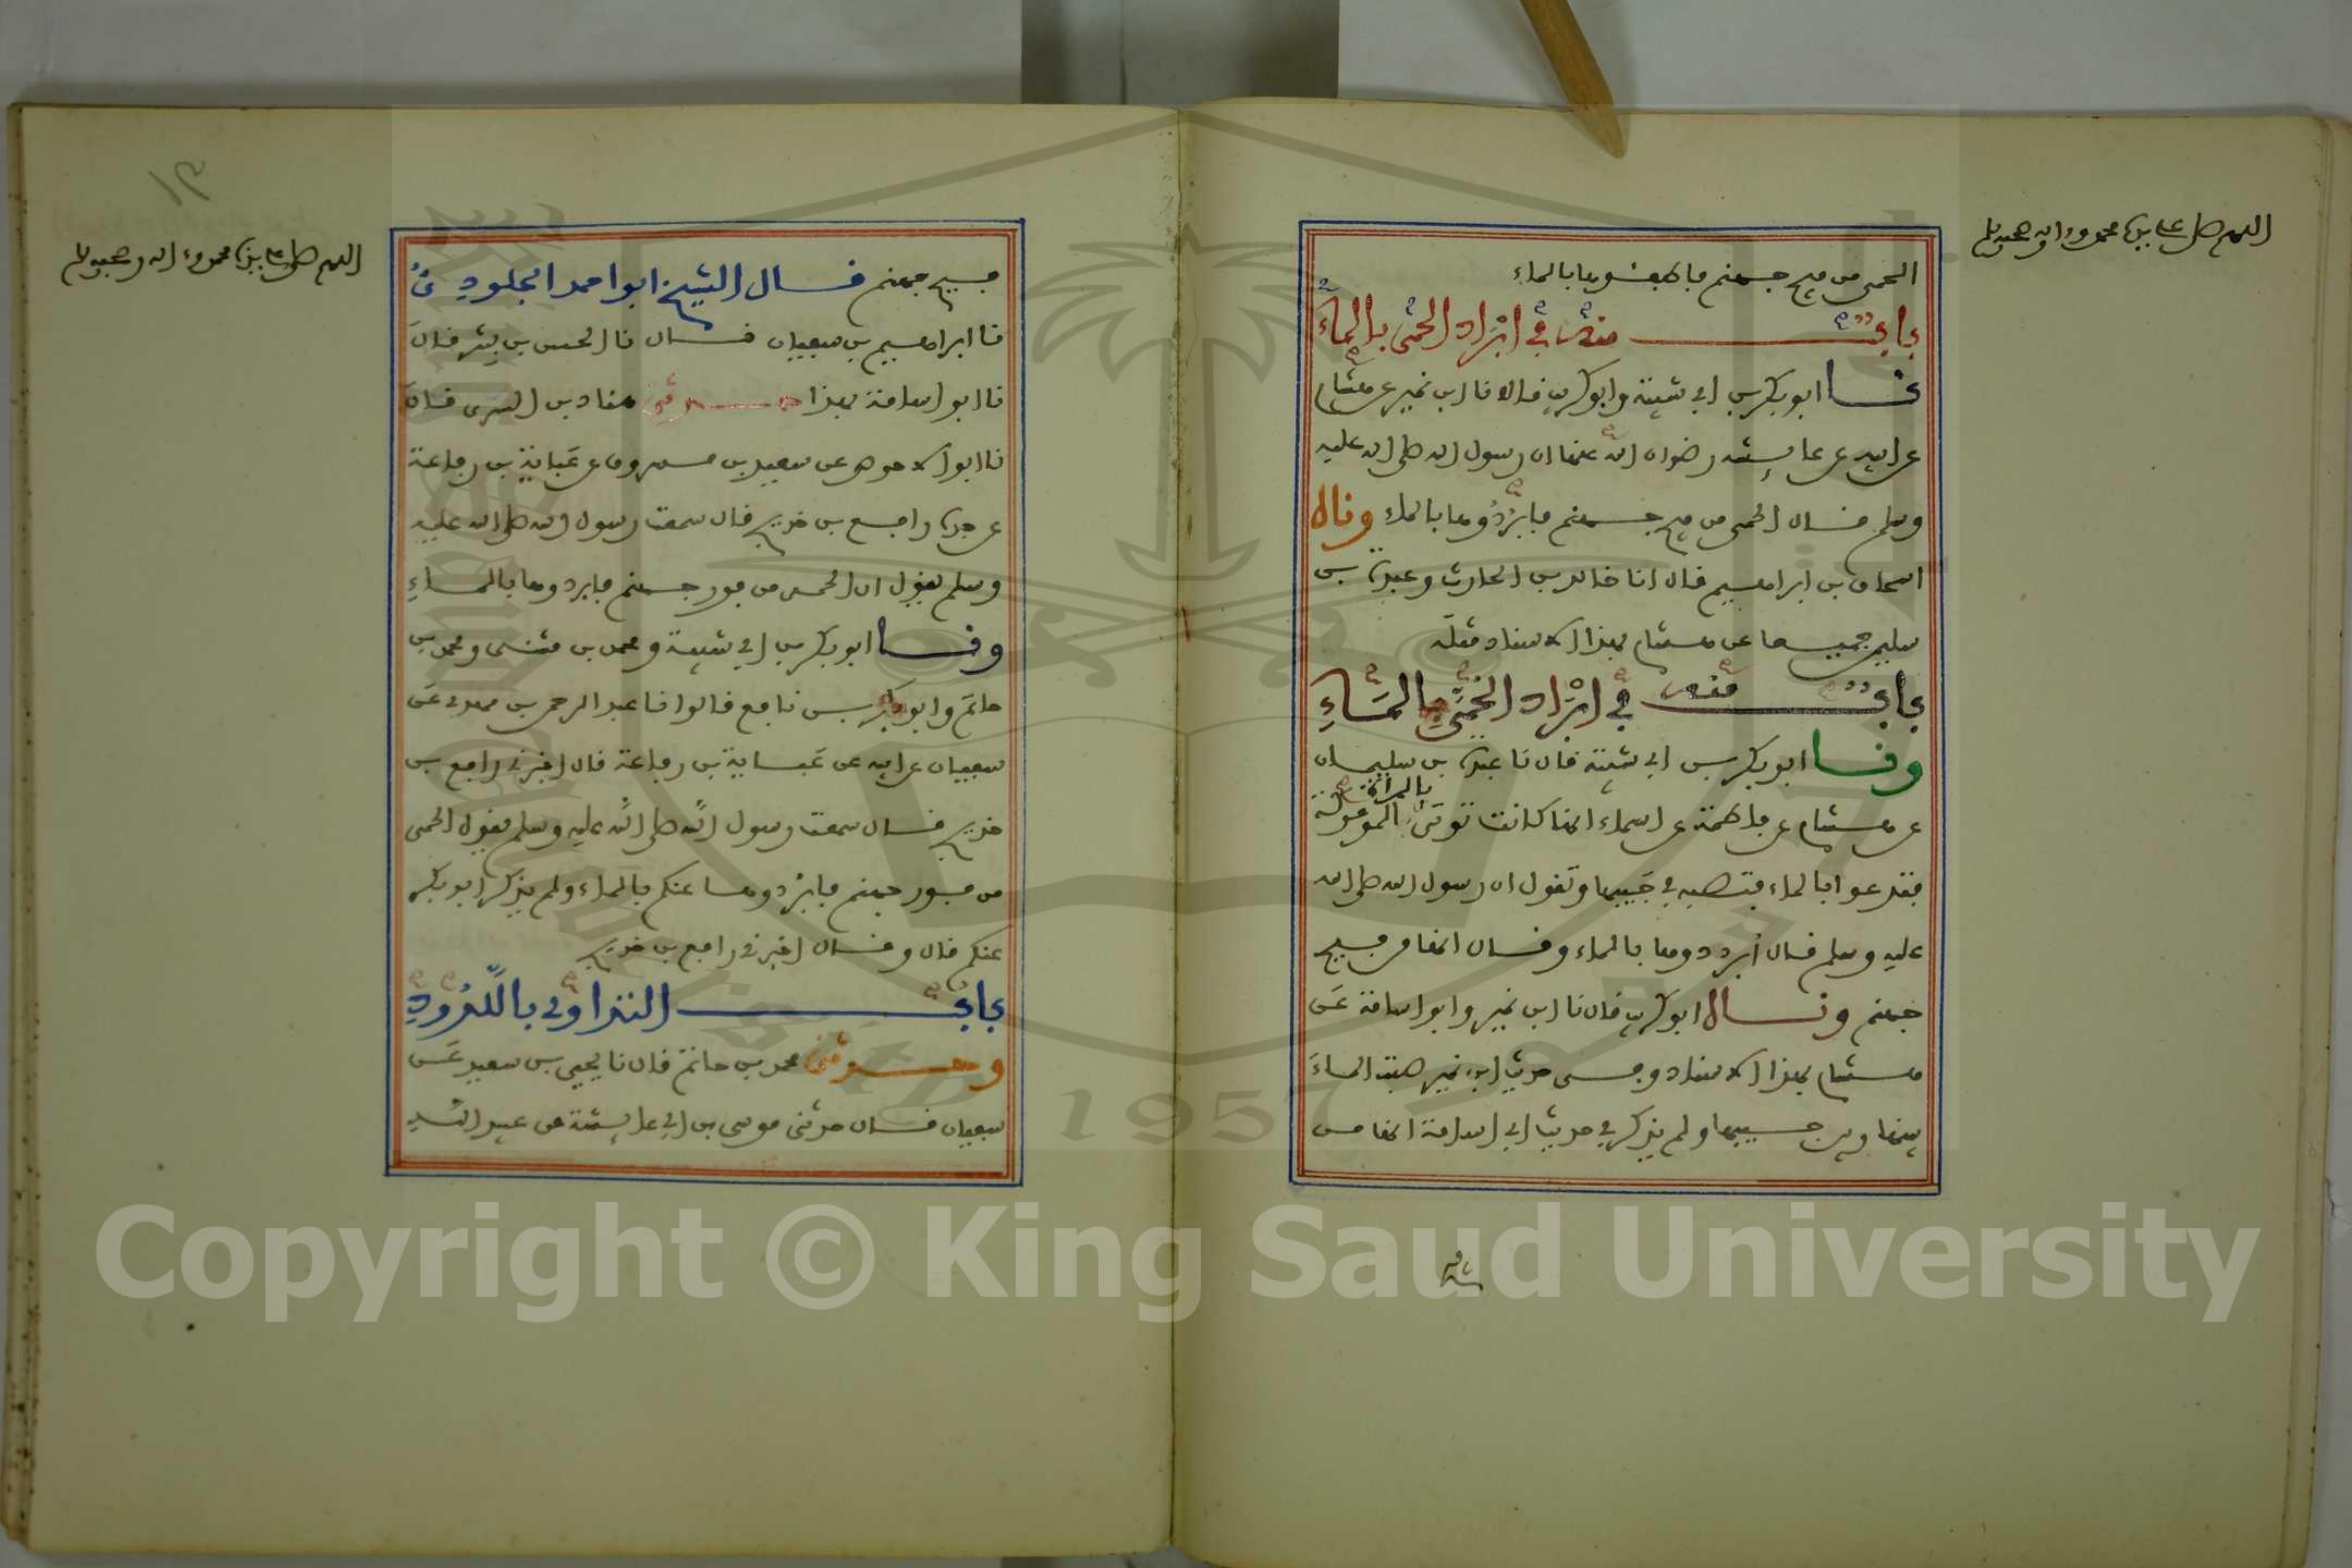 اللهم صل على سيدنا محمد وءاله وصحبه وسلم
الحمى من فيح جهنم فاطفئوها بالماء
باب منه في ابراد الحمى بالماء
نا ابو بكر بن ابي شيبة وابو كريب قالا نا ابن نمير عن هشام
عن ابيه عن عايشة رضوان الله عنها ان رسول الله صلى الله عليه
وسلم قال الحمى من فيح جهنم فابردوها بالماء وقال
اسحاق بن ابراهيم قال انا خالد بن الحارث وعبدة بن
سليمن جميعا عن هشام بهذا الاسناد مثله
باب منه في ابراد الحمى بالماء
ونا ابو بكر بن ابي شيبة قال نا عبدة بن سليمان
عن هشام عن فاطمة عن اسماء انها كانت توتى بالمراة الموعوكة
فتدعوا بالماء فتصبه في جيبها وتقول ان رسول الله صلى الله
عليه وسلم قال ابردوها بالماء وقال انها من فيح
جهنم وقال ابو كريب قال نا ابن نمير وابو اسامة عن
هشام بهذا الاسناد وفي حديث ابن نمير صبت الماء
بينها وبين جيبها ولم يذكر في حديث ابي اسامة انها من
اللهم صل على سيدنا محمد وءاله وصحبه وسلم
فيح جهنم قال الشيخ ابوا محمد الجلودي
نا ابراهيم بن سفيان قال نا الحسن بن بشر قال
نا ابو اسامة بهذا حدثنا هناد بن السري قال
نا ابو الاحوص عن سعيد بن مسروق عن عباية بن رفاعة
عن جده رافع بن خديج قال سمعت رسول الله صلى الله عليه
وسلم يقول ان الحمى من فور جهنم فابردوها بالماء
ونا ابو بكر بن ابي شيبة ومحمد بن مثنى ومحمد بن
حاتم وابو بكر بن نافع قالوا نا عبد الرحمن بن مهدي عن
سفيان عن ابيه عن عباية بن رفاعة قال اخبرني رافع بن
خديج قال سمعت رسول الله صلى الله عليه وسلم يقول الحمى
من فور جهنم فابردوها عنكم بالماء ولم يذكر ابو بكر
عنكم قال وقال اخبرني رافع بن خديج
باب التداوي باللدود
وحدثني محمد بن حاتم قال نا يحيى بن سعيد عن
سفيان قال حدثني موسى بن ابي عايشة عن عبيد الله